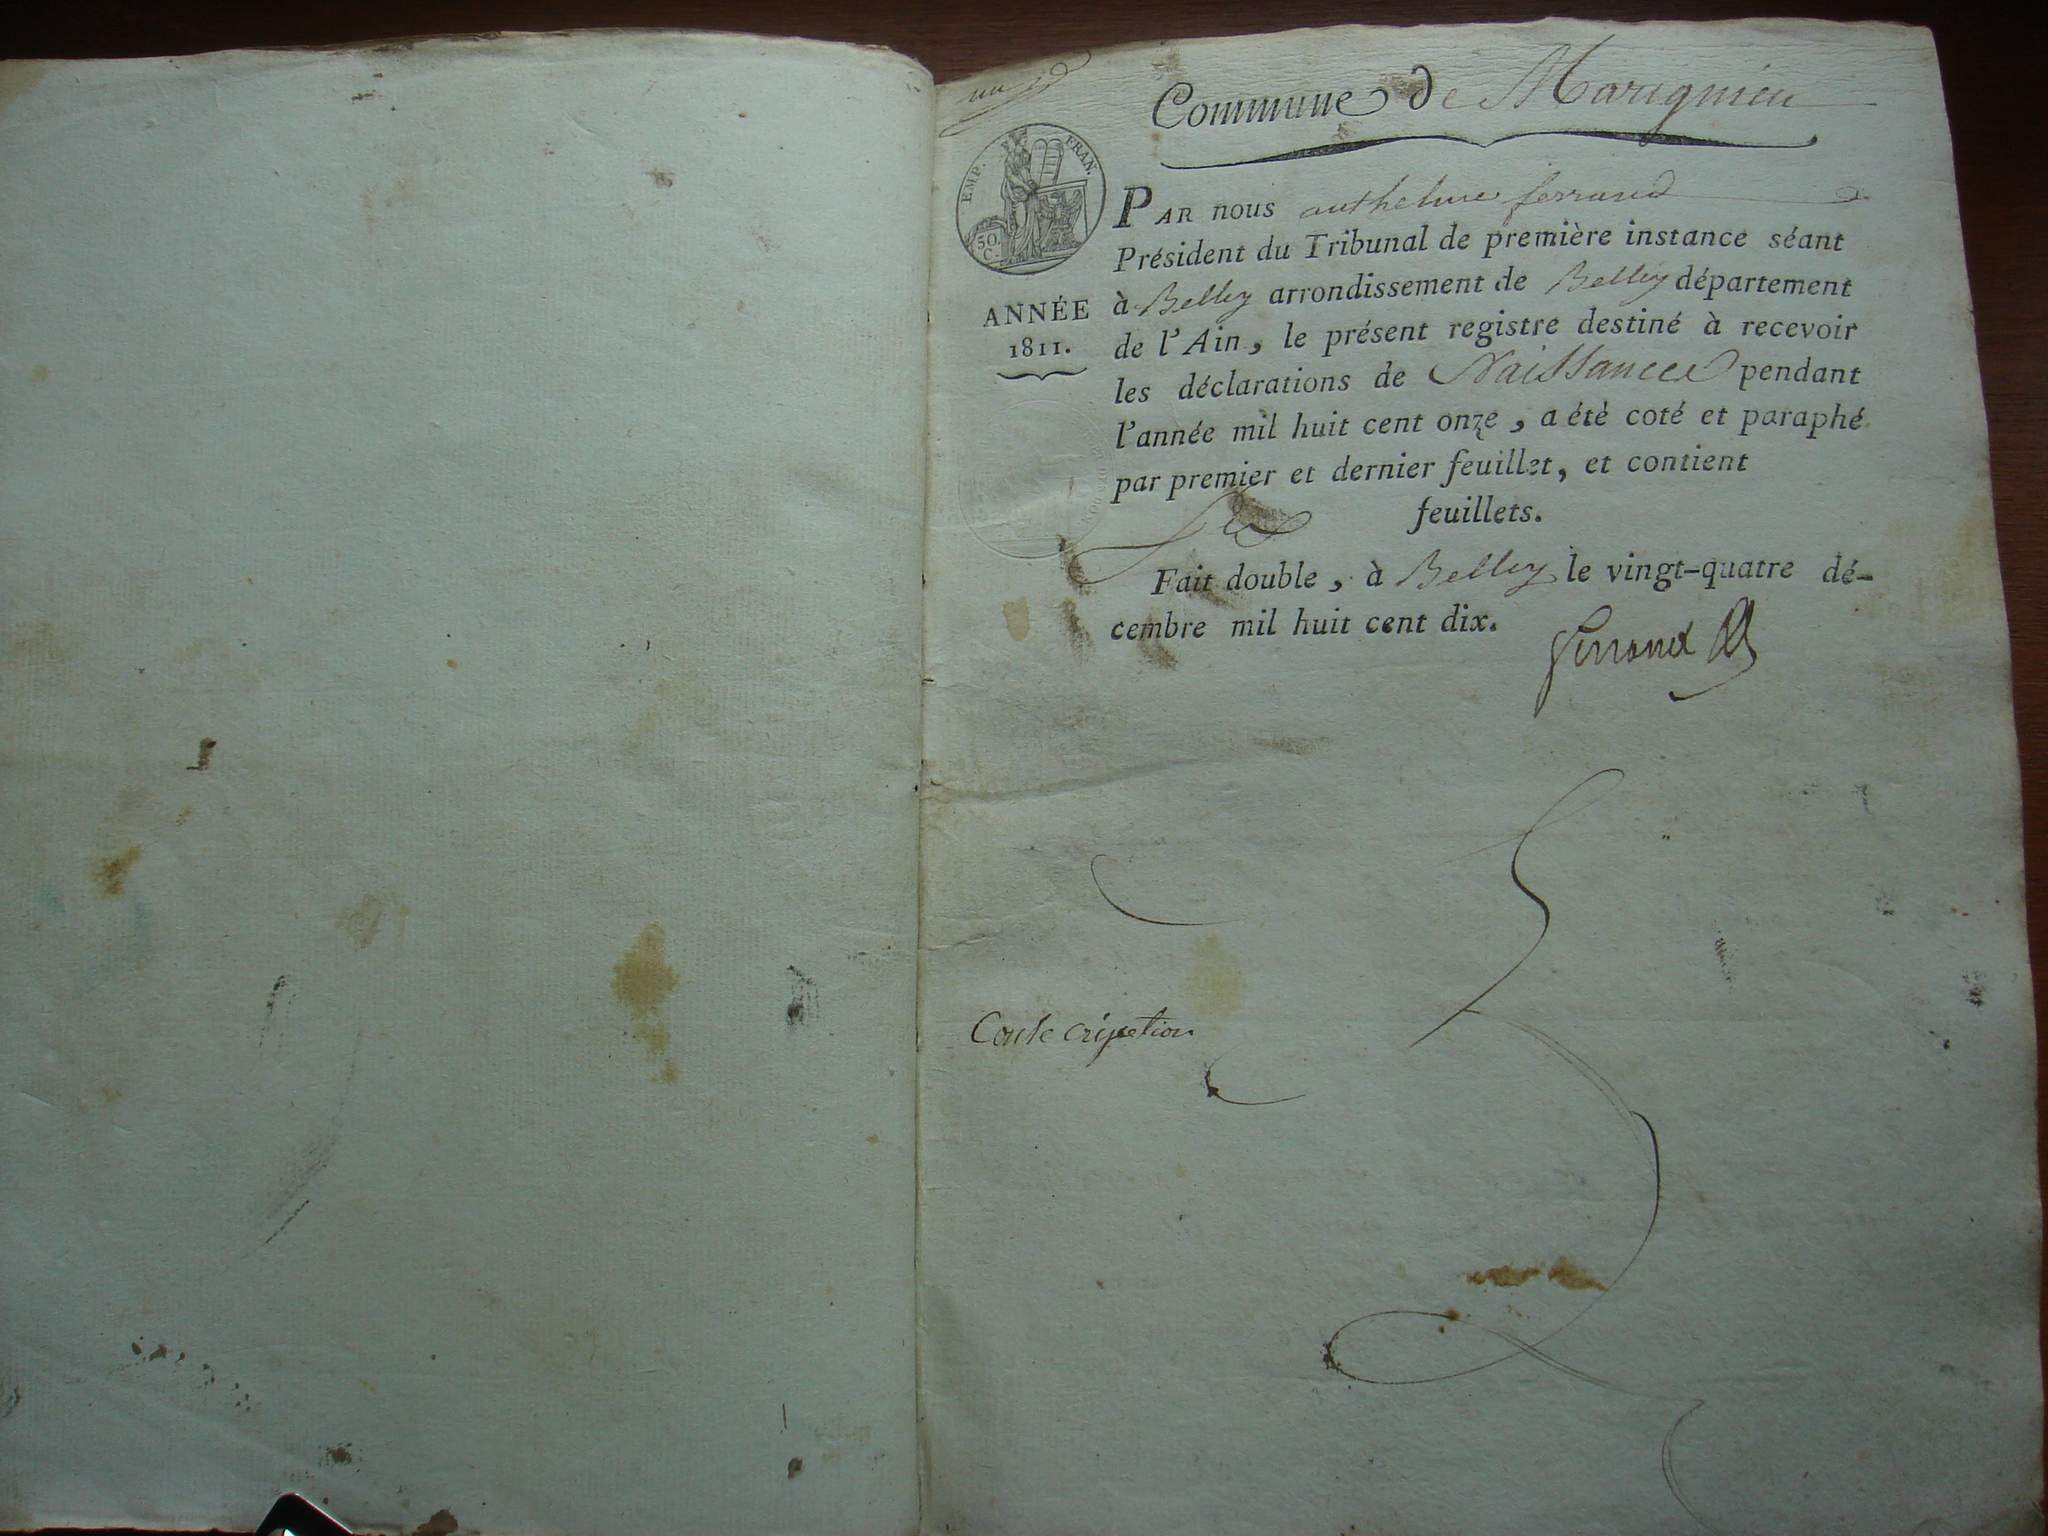 un
Commune de Marignieu
EMP. FRAN.
50.
C.
ANNÉE
1811.
PAR nous anthelme ferrand
Président du Tribunal de première instance séant
à Belley arrondissement de Belley département
de l'Ain, le présent registre destiné à recevoir
les déclarations de Naissances pendant
l'année mil huit cent onze, a été coté et paraphé
par premier et dernier feuillet, et contient
six feuillets.
Fait double, à Belley le vingt-quatre dé-
cembre mil huit cent dix.
Ferrand